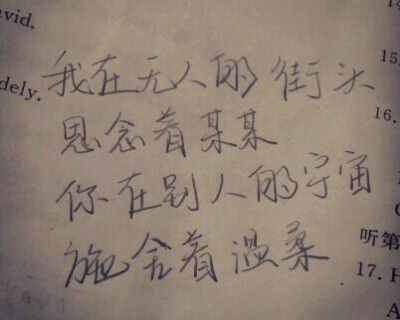 vid.
dely.
我在无人的街头
思念着某某
你在别人的宇宙
施舍着温柔
15
16.
听第
17. H
A